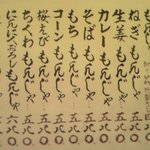 もんじ
ねぎもんじゃ 五八〇
生姜もんじゃ 五八〇
カレーもんじゃ 五八〇
そばもんじゃ 五八〇
もちもんじゃ 五八〇
コーンもんじゃ 五八〇
桜えびもんじゃ 五八〇
ちくわもんじゃ 五八〇
もんじゃ 五八〇